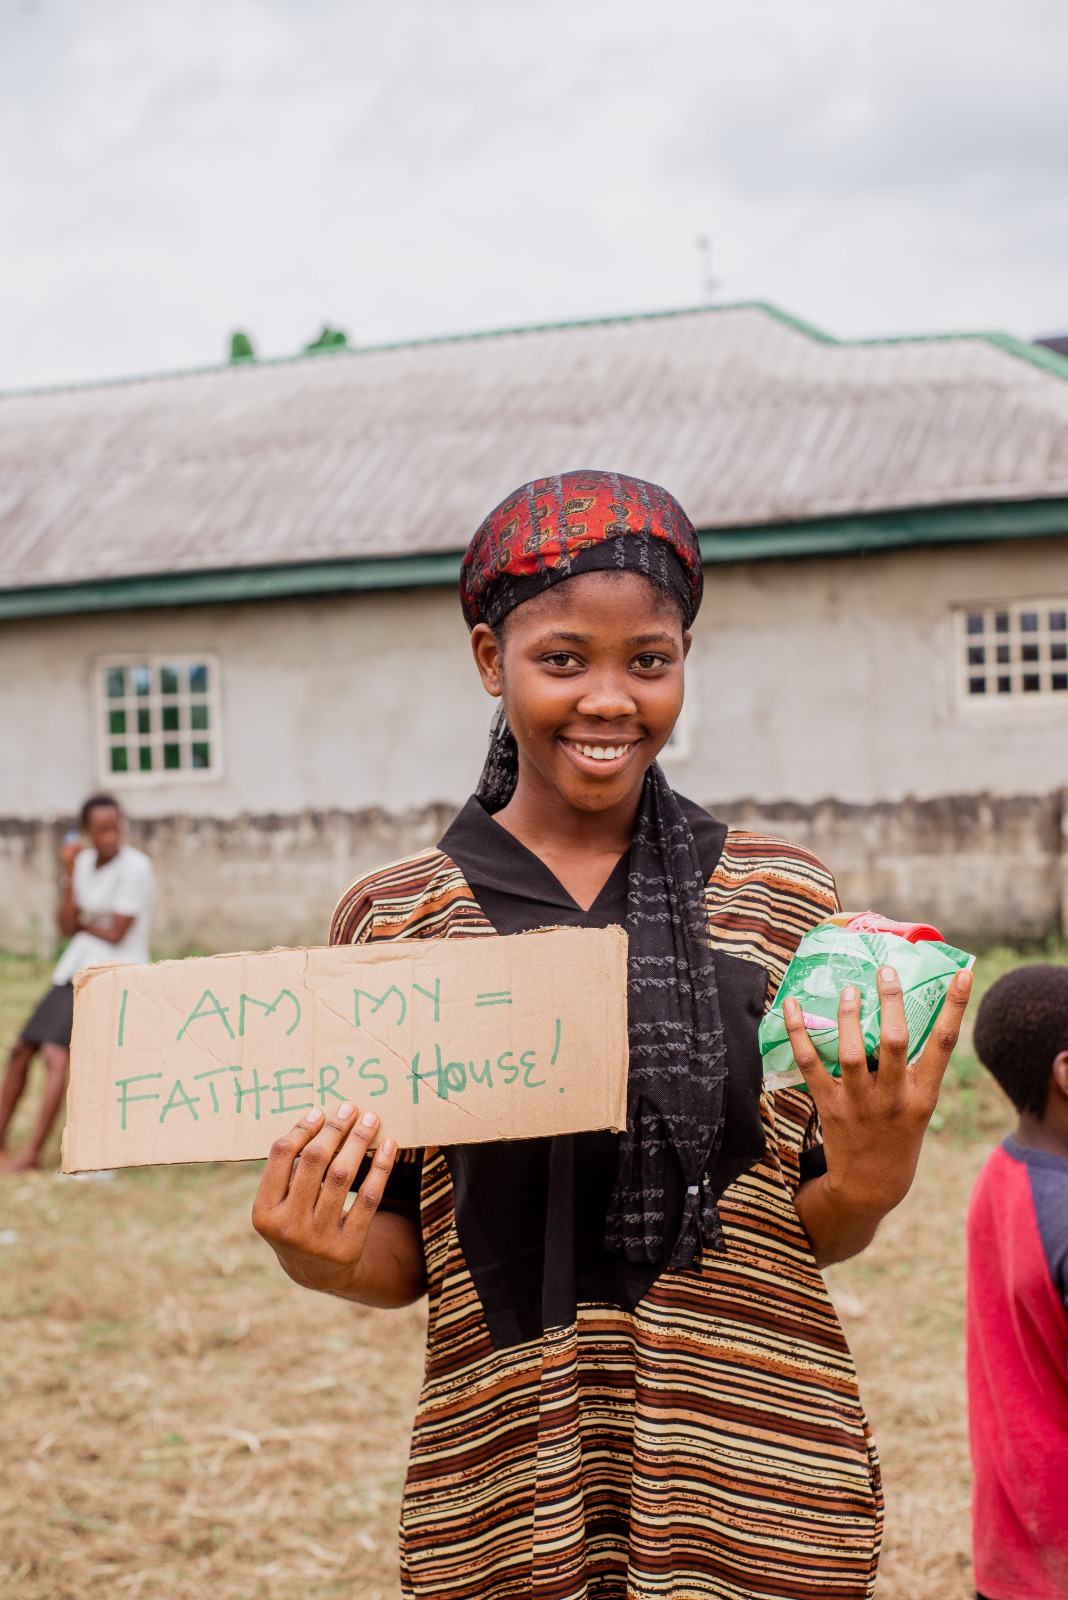 I AM MY =
FATHER'S HOUSE!